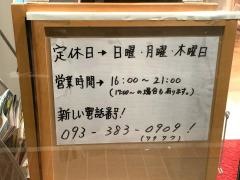 定休日→日曜・月曜・木曜日
営業時間→16:00~21:00
(17:00~の場合も有ります。)
新しい電話番号!
093-383-0909!